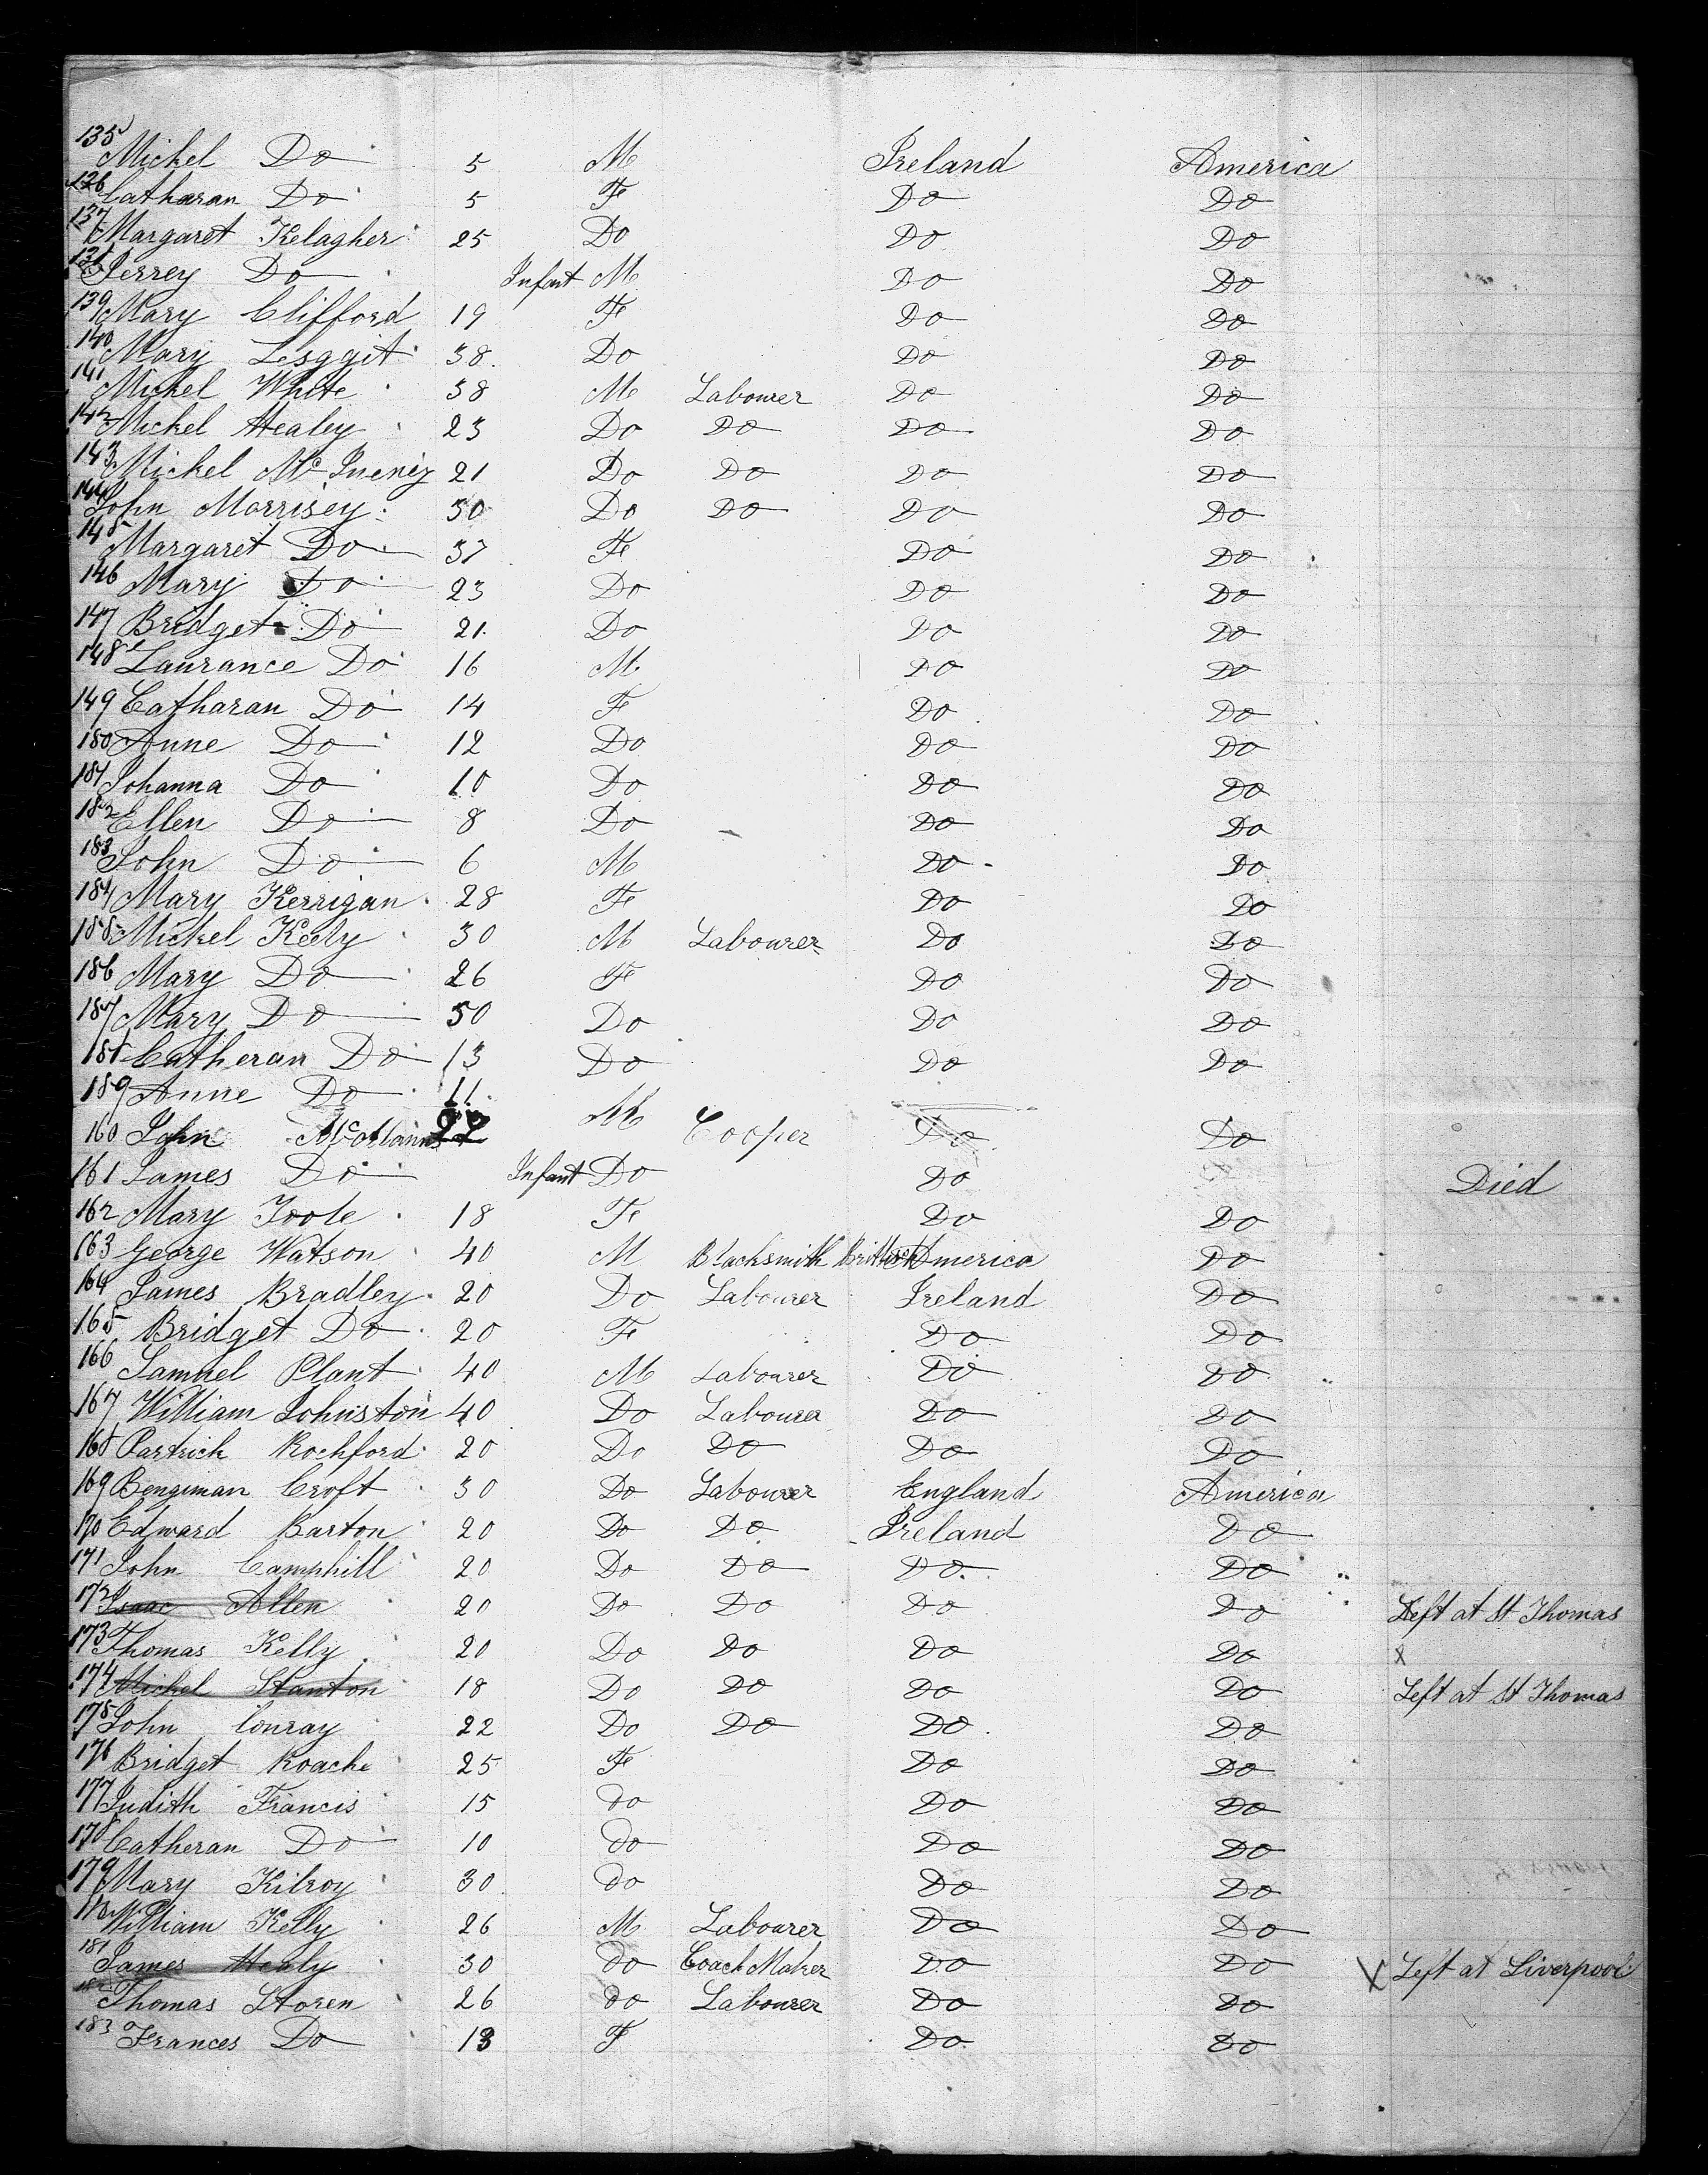 135 Mickel Do 5 M Ireland America
136 Catharan Do 5 Fe Do Do
137 Margaret Kelagher 25 Do Do Do
138 Jerrey Do Infant M Do Do
139 Mary Clifford 19 Fe Do Do
140 Mary Lesggit 38 Do Do Do
141 Mickel White 38 M Labourer Do Do
142 Mickel Healey 23 Do Do Do Do
143 Mickel 21 Do Do Do Do
144 John Morrisey 50 Do Do Do Do
145 Margaret Do 37 Fe Do Do
146 Mary Do 23 Do Do Do
147 Bridget Do 21 Do Do Do
148 Laurance Do 16 M Do Do
149 Catharan Do 14 F Do Do
150 Anne Do 12 Do Do Do
151 Johanna Do 10 Do Do Do
152 Ellen Do 8 Do Do Do
153 John Do 6 M Do Do
154 Mary Kerrigan 28 Fe Do Do
155 Mickel Keely 30 M Labourer Do Do
156 Mary Do 26 Fe Do Do
157 Mary Do 50 Do Do Do
158 Catheran Do 13 Do Do Do
159 Anne Do 11
160 John 27 M Cooper Do Do
161 James Do Infant Do Do Died
162 Mary Toole 18 Fe Do Do
163 George Watson 40 M Blacksmith British America Do
164 James Bradley 20 Do Labourer Ireland Do
165 Bridget Do 20 Fe Do Do
166 Samuel Plant 40 M Labourer Do Do
167 William Johnston 40 Do Labourer Do Do
168 Partrick Rochford 20 Do Do Do Do
169 Bengiman Croft 30 Do Labourer England America
170 Edward Barton 20 Do Do Ireland Do
171 John Camphill 20 Do Do Do Do
172 Isaac Allen 20 Do Do Do Do Left at St Thomas
173 Thomas Kelly 20 Do Do Do Do x
174 Mickel Stanton 18 Do Do Do Do Left at St Thomas
175 John Conray 22 Do Do Do Do
176 Bridget Roache 25 Fe Do Do
177 Judith Francis 15 do Do Do
178 Catheran Do 10 do Do Do
179 Mary Kilroy 30 do Do Do
180 William Kelly 26 M Labourer Do Do
181 James Healy 30 do Coach Maker Do Do X Left at Liverpool
182 Thomas Storen 26 do Labourer Do Do
183 Frances Do 13 F Do Do